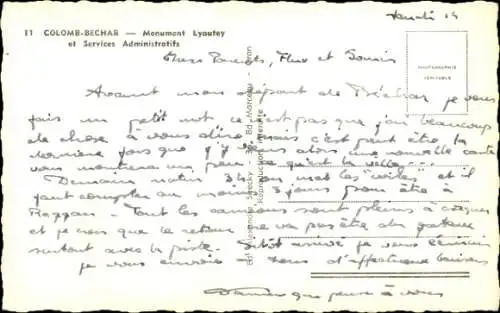 Lundi 14
11 COLOMB-BECHAR — Monument Lyautey
et Services Administratifs
Mes Parents, Flux et Souris
PHOTOGRAPHIE
VERITABLE
Avant mon départ de Béchar je vous
fais un petit mot ce n'est pas que j'ai beaucoup
de chose à vous dire mais c'est peut être la
dernière fois que j'y viens alors une nouvelle carte
vous montrera un peu ce qu'est la ville...
Demain matin 3h on met les "voiles" et il
faut compter au moins 3 jours pour être à
Reggan - Tout les camions sont pleins à craquer
et je crois que le retour ne va pas être du gateau
surtout avec la piste. Sitôt arrivé je vous écrirais
je vous envoie tous d'affectueux baisers
qui pense à vous
Reproduction interdite